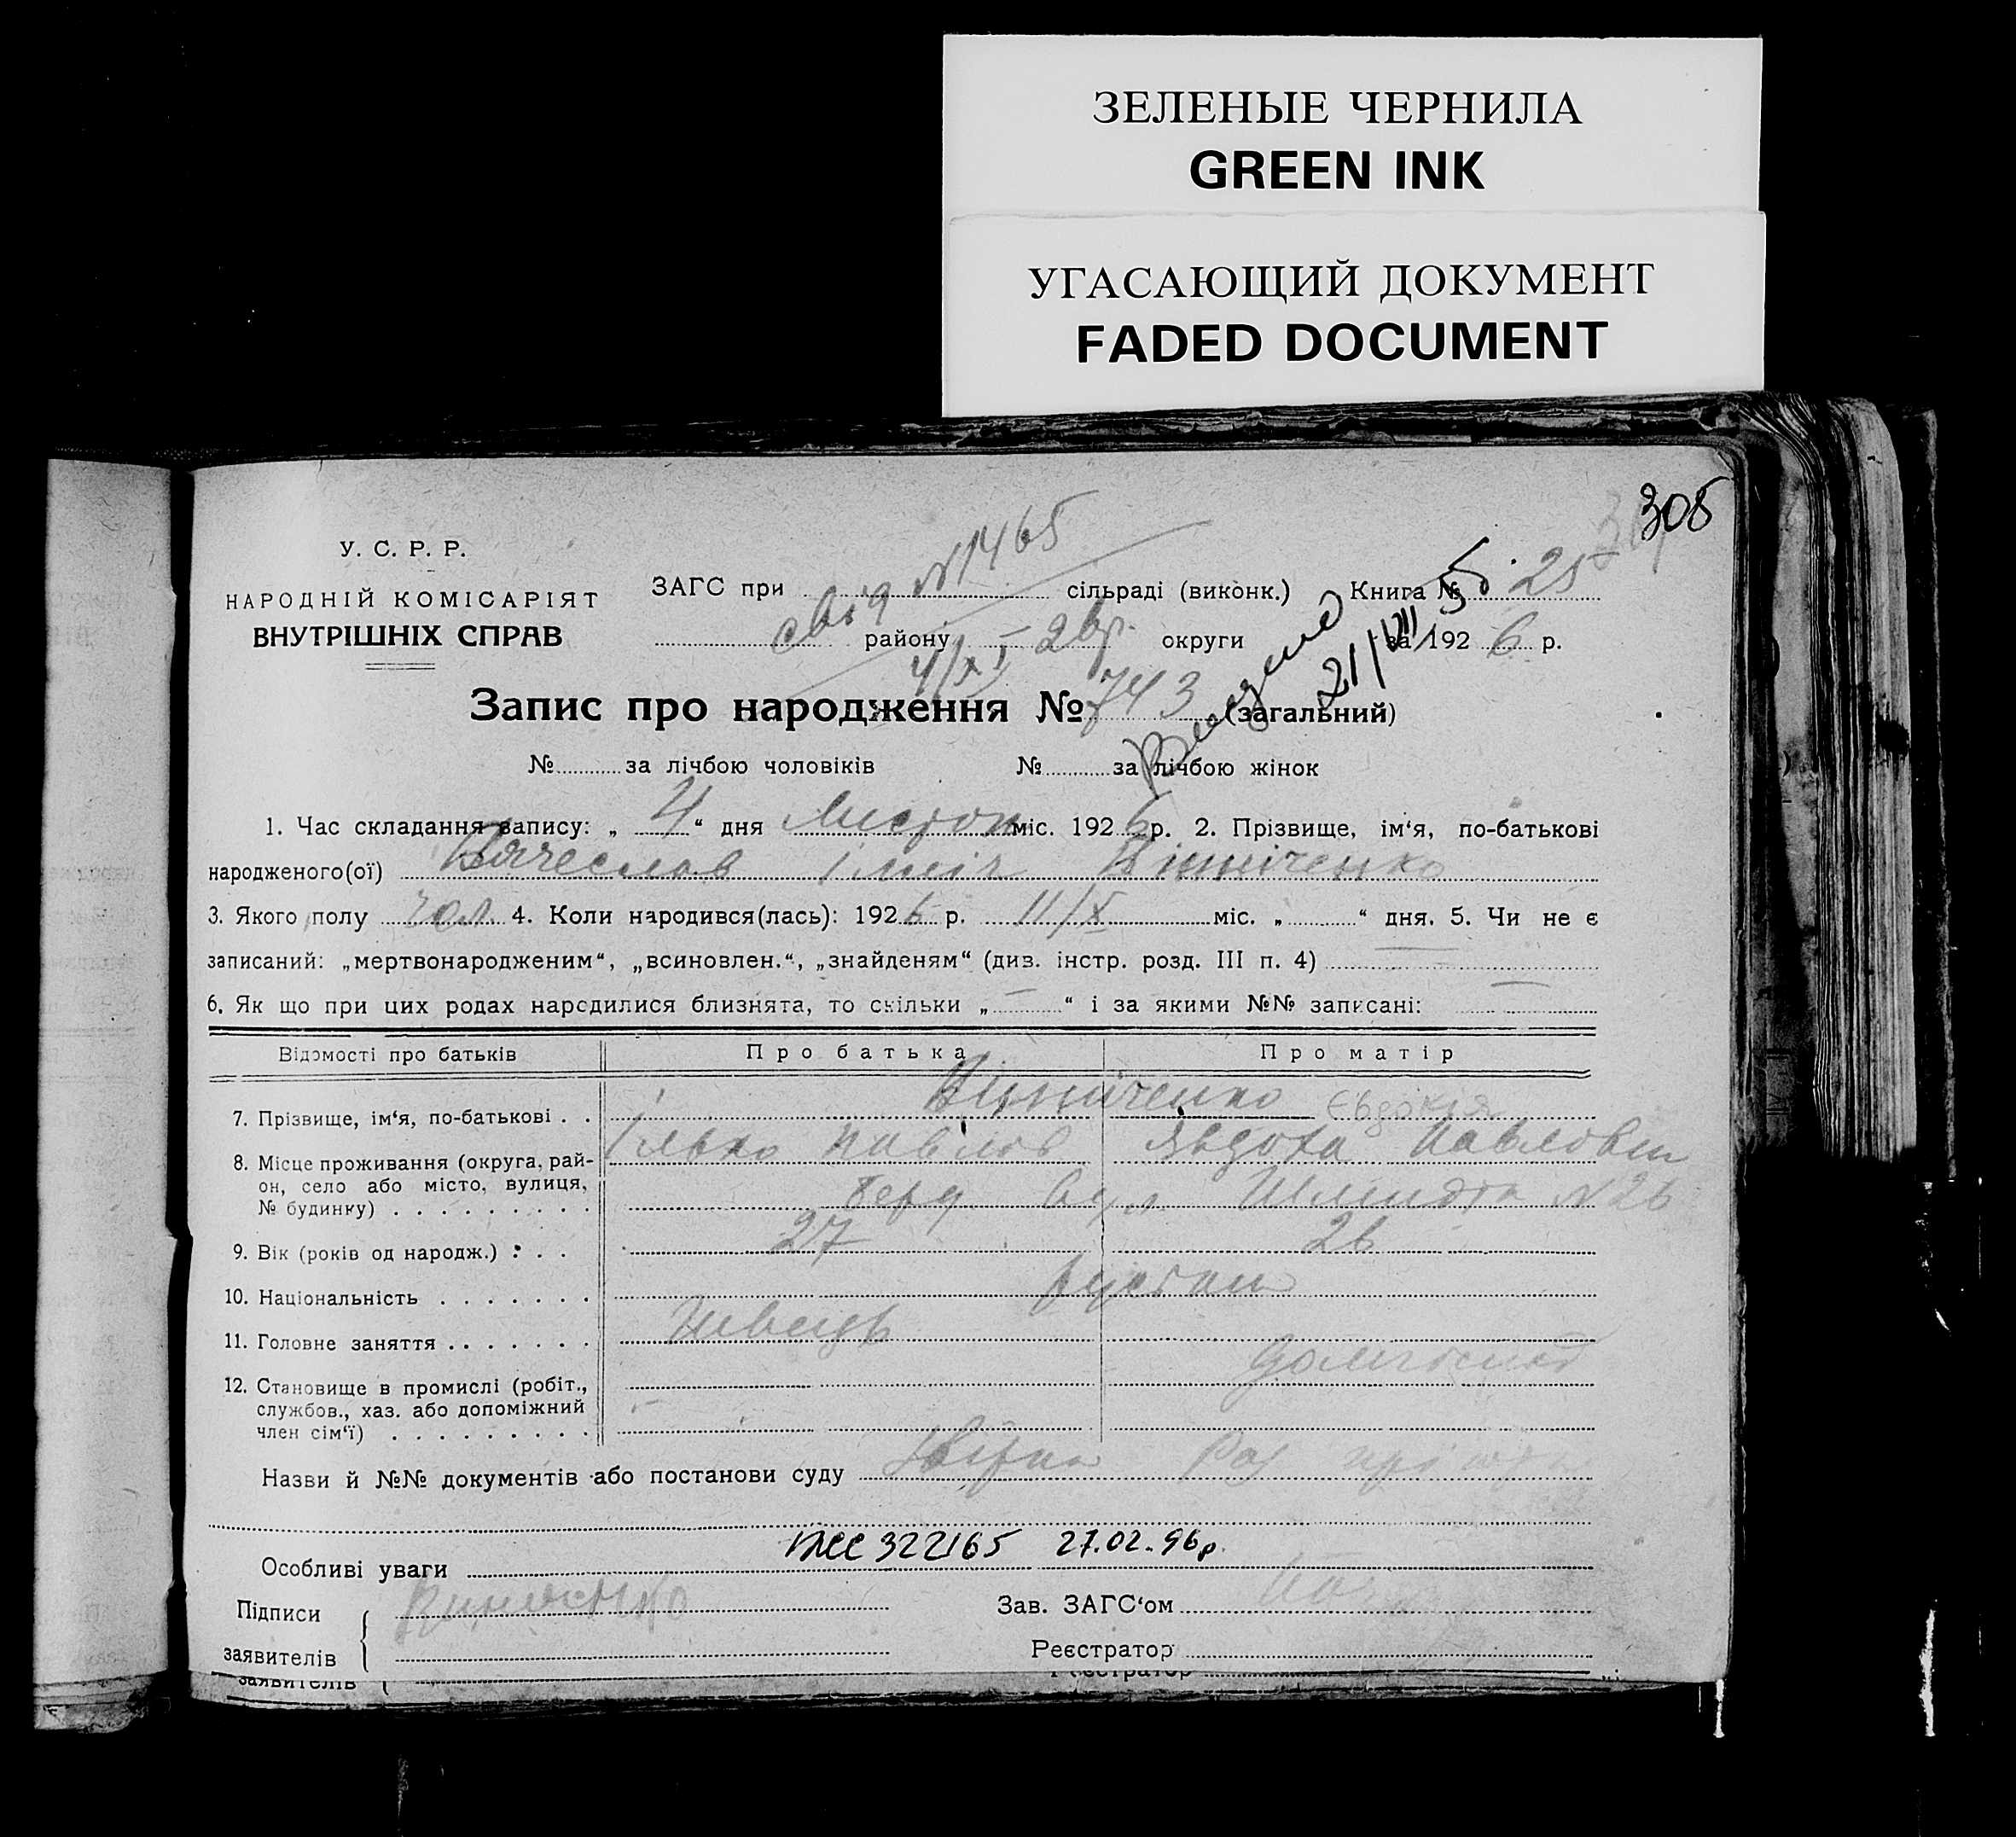 ЗЕЛЕНЫЕ ЧЕРНИЛА
GREEN INK
УГАСАЮЩИЙ ДОКУМЕНТ
FADED DOCUMENT
305
У. С. Р. Р.
НАРОДНІЙ КОМІСАРІЯТ
ВНУТРІШНІХ СПРАВ
ЗАГС при сільраді (виконк.) Книга № 25
району округи за 1926 р.
свід №1465
4/XI 2 вр.
Видано 21/VIII 55
Запис про народження № 743 (загальний)
№ за лічбою чоловіків № за лічбою жінок
1. Час складання запису: „ 4 “ дня Листоп міс. 1926 р. 2. Прізвище, ім‘я, по-батькові
народженого(ої) Вячеслав Ілліч Вінніченко
3. Якого полу чол. 4. Коли народився(лась): 1926 р. 11/X міс. „ “ дня. 5. Чи не є
записаний: „мертвонародженим“, „всиновлен.“, „знайденям“ (див. інстр. розд. III п. 4)
6. Як що при цих родах народилися близнята, то скільки „ — “ і за якими №№ записані: —
Відомості про батьків Про батька Про матір
Винніченко Євдокія
7. Прізвище, ім‘я, по-батькові . .
Ілько Павлов Явдоха Павловна
8. Місце проживання (округа, рай-
он, село або місто, вулиця,
№ будинку) . . . . . . . . .
Берд вул. Шмидта №26
9. Вік (років од народж.) : . . 27 26
10. Національність . . . . . . .
11. Головне заняття . . . . . . . Швець
домгоспод
12. Становище в промислі (робіт.,
службов., хаз. або допоміжний
член сім‘ї) . . . . . . . . .
Назви й №№ документів або постанови суду
322165 27.02.96р.
Особливі уваги
Підписи
заявителів
Зав. ЗАГС‘ом
Реєстратор
заявителів
Реєстратор